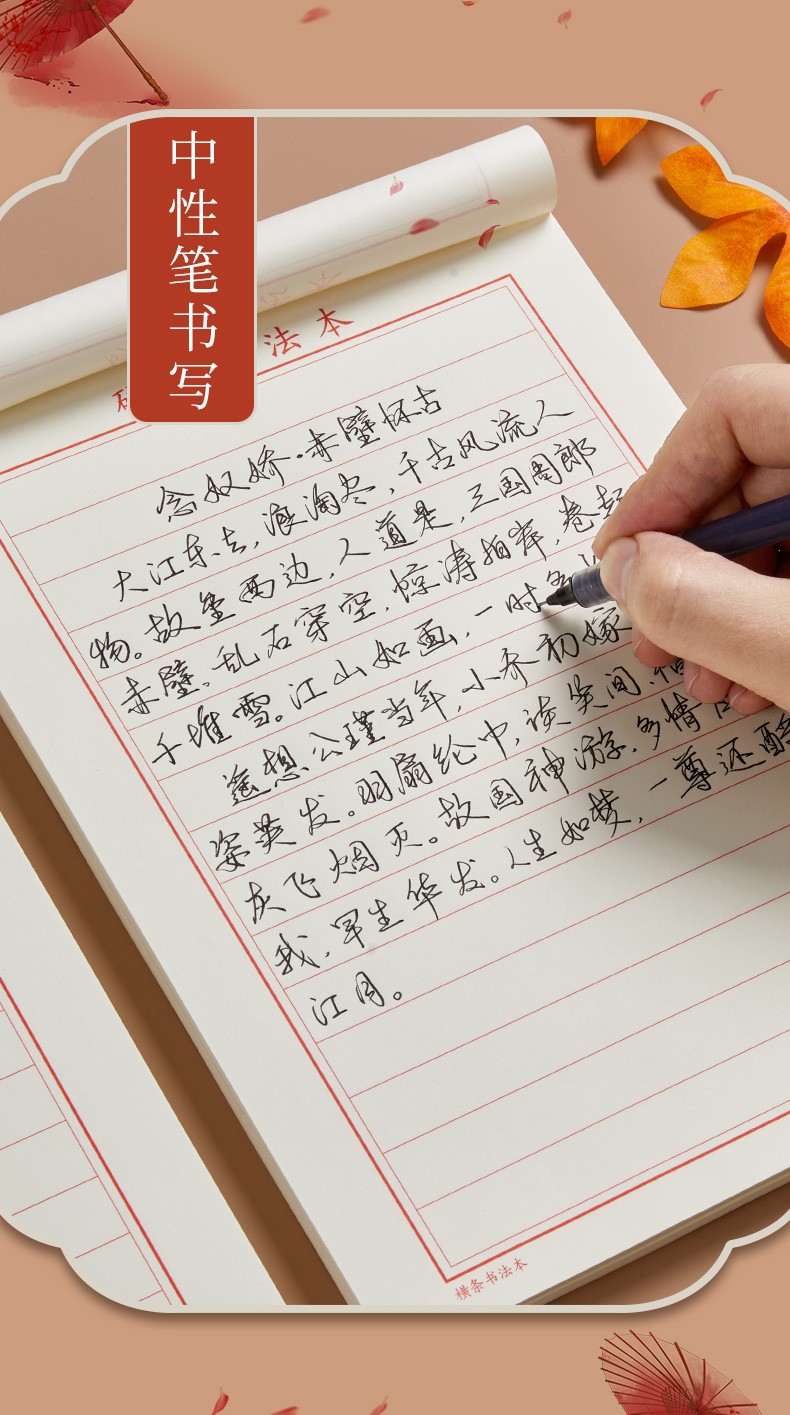 中性笔书写
法本
念奴娇·赤壁怀古
大江东去，浪淘尽，千古风流人
物。故垒西边，人道是，三国周郎
赤壁。乱石穿空，惊涛拍岸，卷起
千堆雪。江山如画，一时多
遥想公瑾当年，小乔初嫁
姿英发。羽扇纶中，谈笑间，樯
灰飞烟灭。故国神游，多情
我，早生华发。人生如梦，一尊还酹
江月。
横条书法本